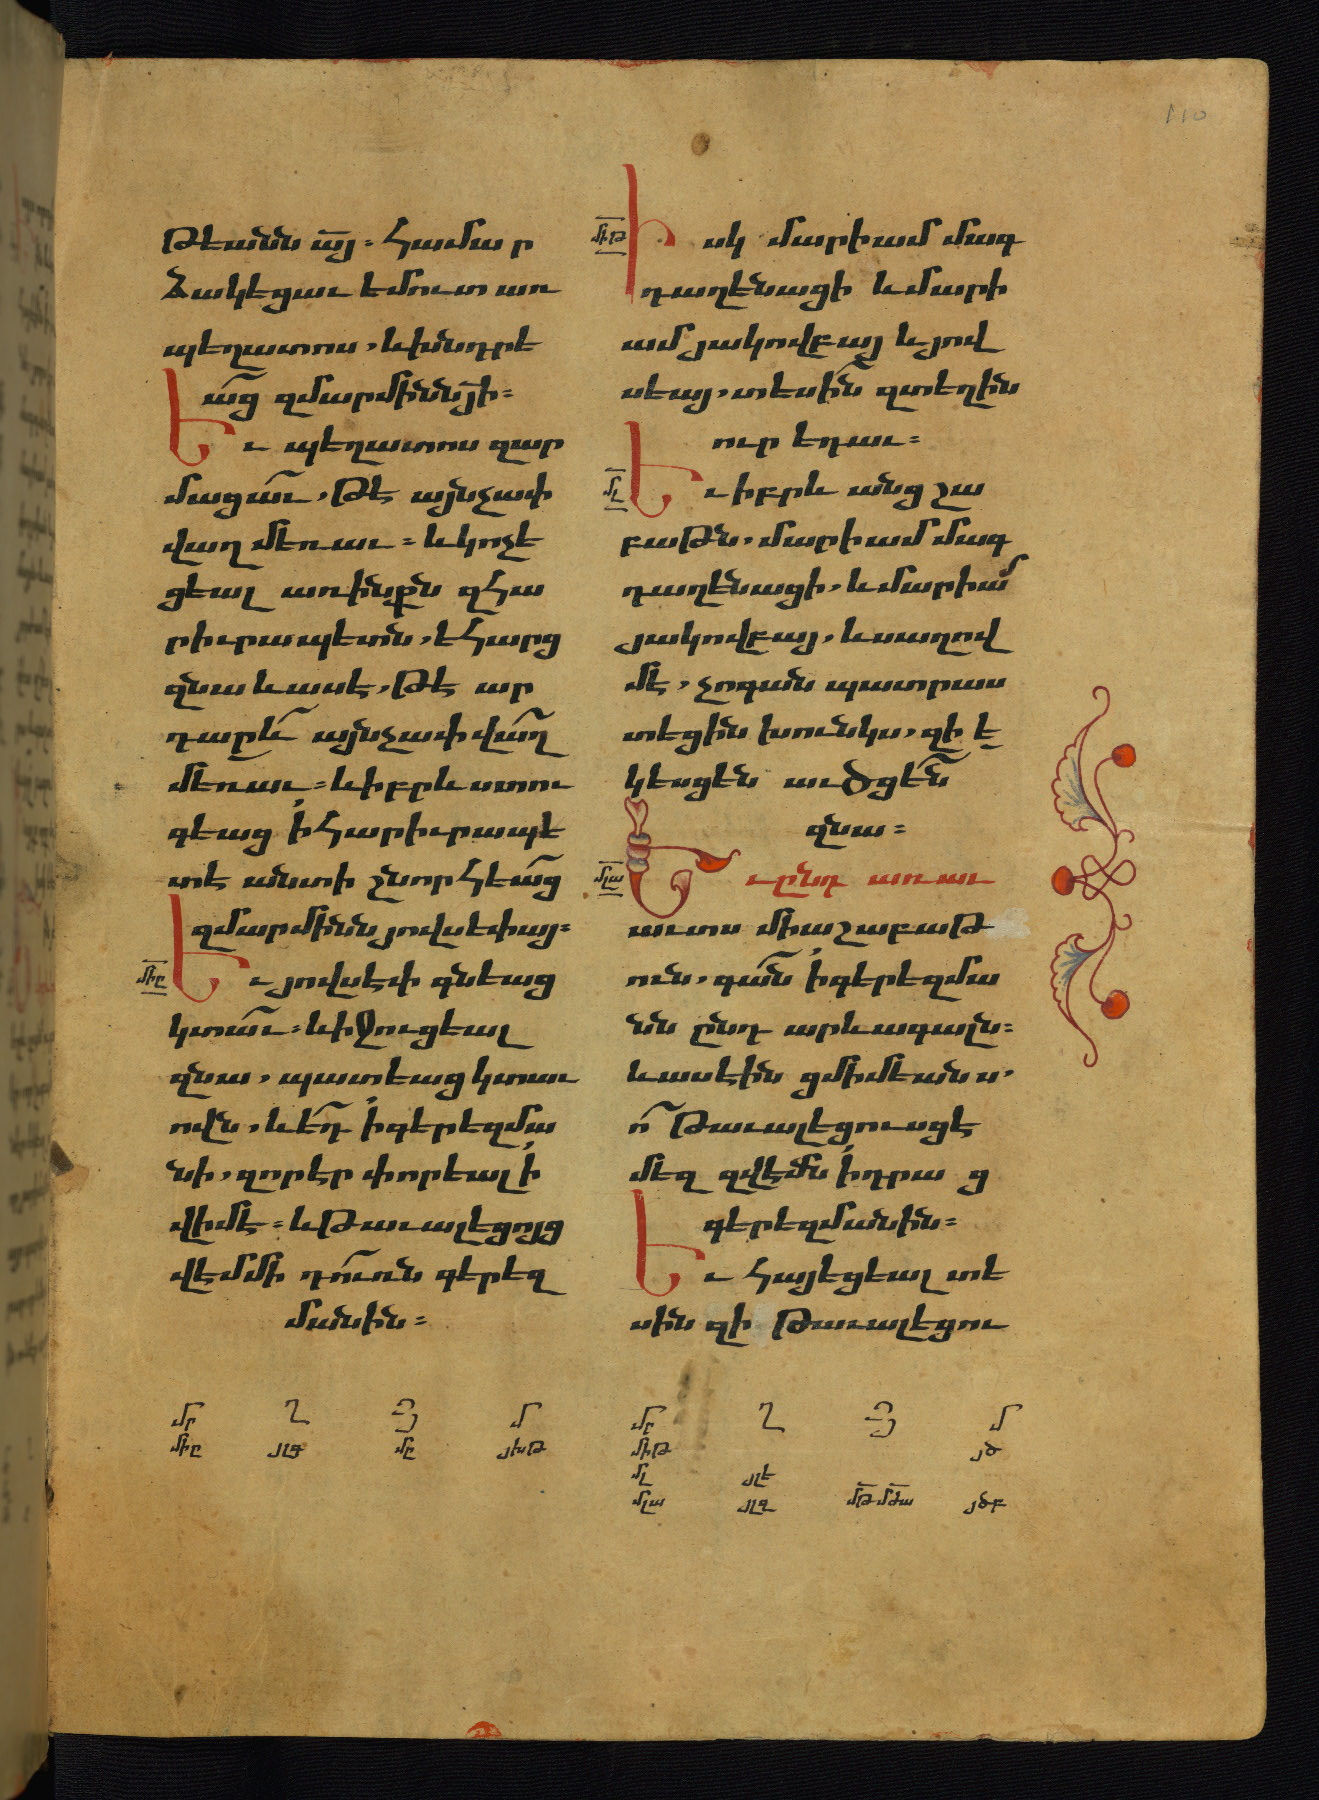 110
թեանն ա՟յ։ համար
ձակեցաւ եմուտ առ
պեղատոս, և խնդրե
ա՟ց զմարմինն յ՟ի։
Եւ պեղատոս զար
մացա՟ւ, թէ այնչափ
վաղ մեռաւ։ և կոչե
ցեալ առ ինքն զհա
րիւրապետն, եհարց
զնա և ասէ, թէ ար
դարև՟ այնչափ վա՟ղ
մեռաւ։ և իբրև ստու
գեաց ի հարիւրապե
տէ անտի շնորհեա՟ց
զմարմինն յովսեփայ։
մ՟իը
Եւ յովսէփ գնեաց
կտա՟ւ։ և իջուցեալ
զնա, պատեաց կտաւ
ովն, և ե՟դ ի գերեզմա
նի, զոր էր փորեալ ի
վիմէ։ և թաւալեցոյց
վէմ մի դո՟ւռն գերեզ
մանին։
մ՟իթ
Իսկ մարիամ մագ
դաղենացի և մարի
ամ յակովբայ և յով
սեայ, տեսին՟ զտեղին
ուր եդաւ։
մ՟լ
Եւ իբրև անց շա
բաթն, մարիամ մագ
դաղենացի, և մարիա՟մ
յակովբայ, և սաղով
մէ, չոգան պատրաս
տեցին խունկս, զի ե
կեսցեն աւծցե՟ն
զնա։
մ՟լա
Եւ ընդ առաւ
աւտս միաշաբաթ
ուն, գա՟ն ի գերեզմա
նն ընդ արևագալն։
և ասէին ցմիմեանս,
ո՟ թաւալեցուսցէ
մեզ զվէմն ի դրա ց
գերեզմանին։
Եւ հայեցեալ տե
սին զի թաւալեցու
մր Ղ Յ մ
միը յլգ մը յխթ
մը Ղ Յ մ
միթ յծ
մլ յլե
մլա յլզ մ՟թ մ՟ծա յծբ